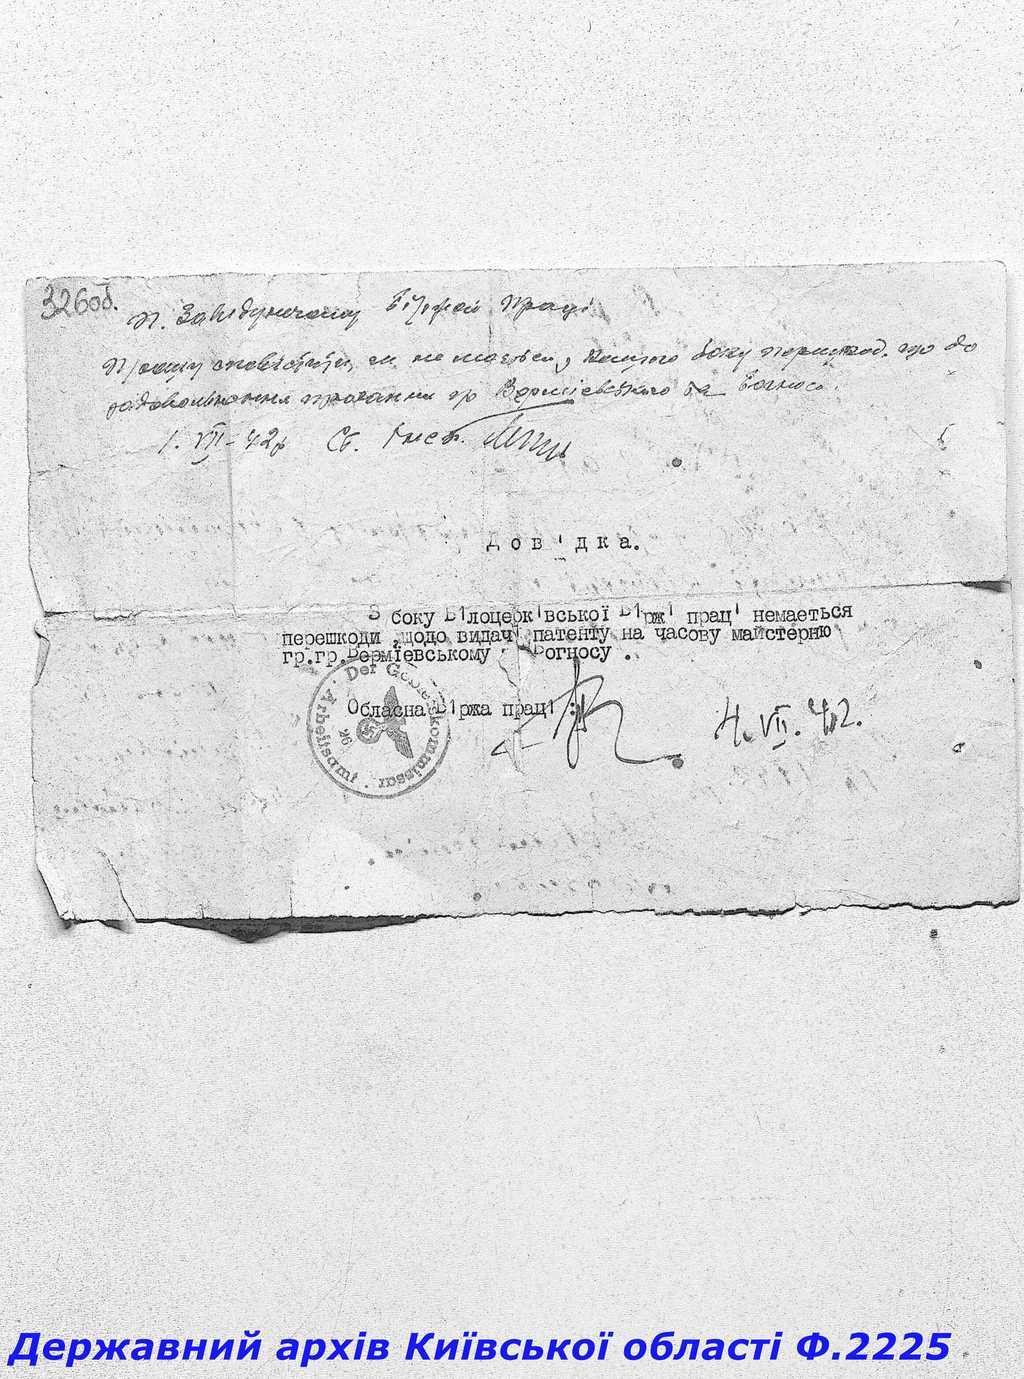 326об.
П. Завідуючому Біржой Праці
Прошу сповістити, чи не мається з Вашого боку перешкод що до
задовольнення прохання гр. Вермієвського та Вогноса.
1. VII - 42 р Ст. Інсп.
Довідка.
З боку Білоцерківської Біржі праці немається
перешкоди щодо видачі патенту на часову майстерню
гр.гр.Вермієвському і Вогносу .
Обласна Біржа праці :
4. VII. 42.
Der Gebietskommissar
Arbeitsamt
26
Державний архів Київської області Ф.2225